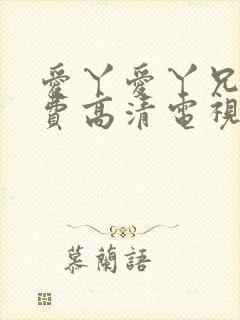 愛丫愛丫兄
費高清電視
慕蘭語